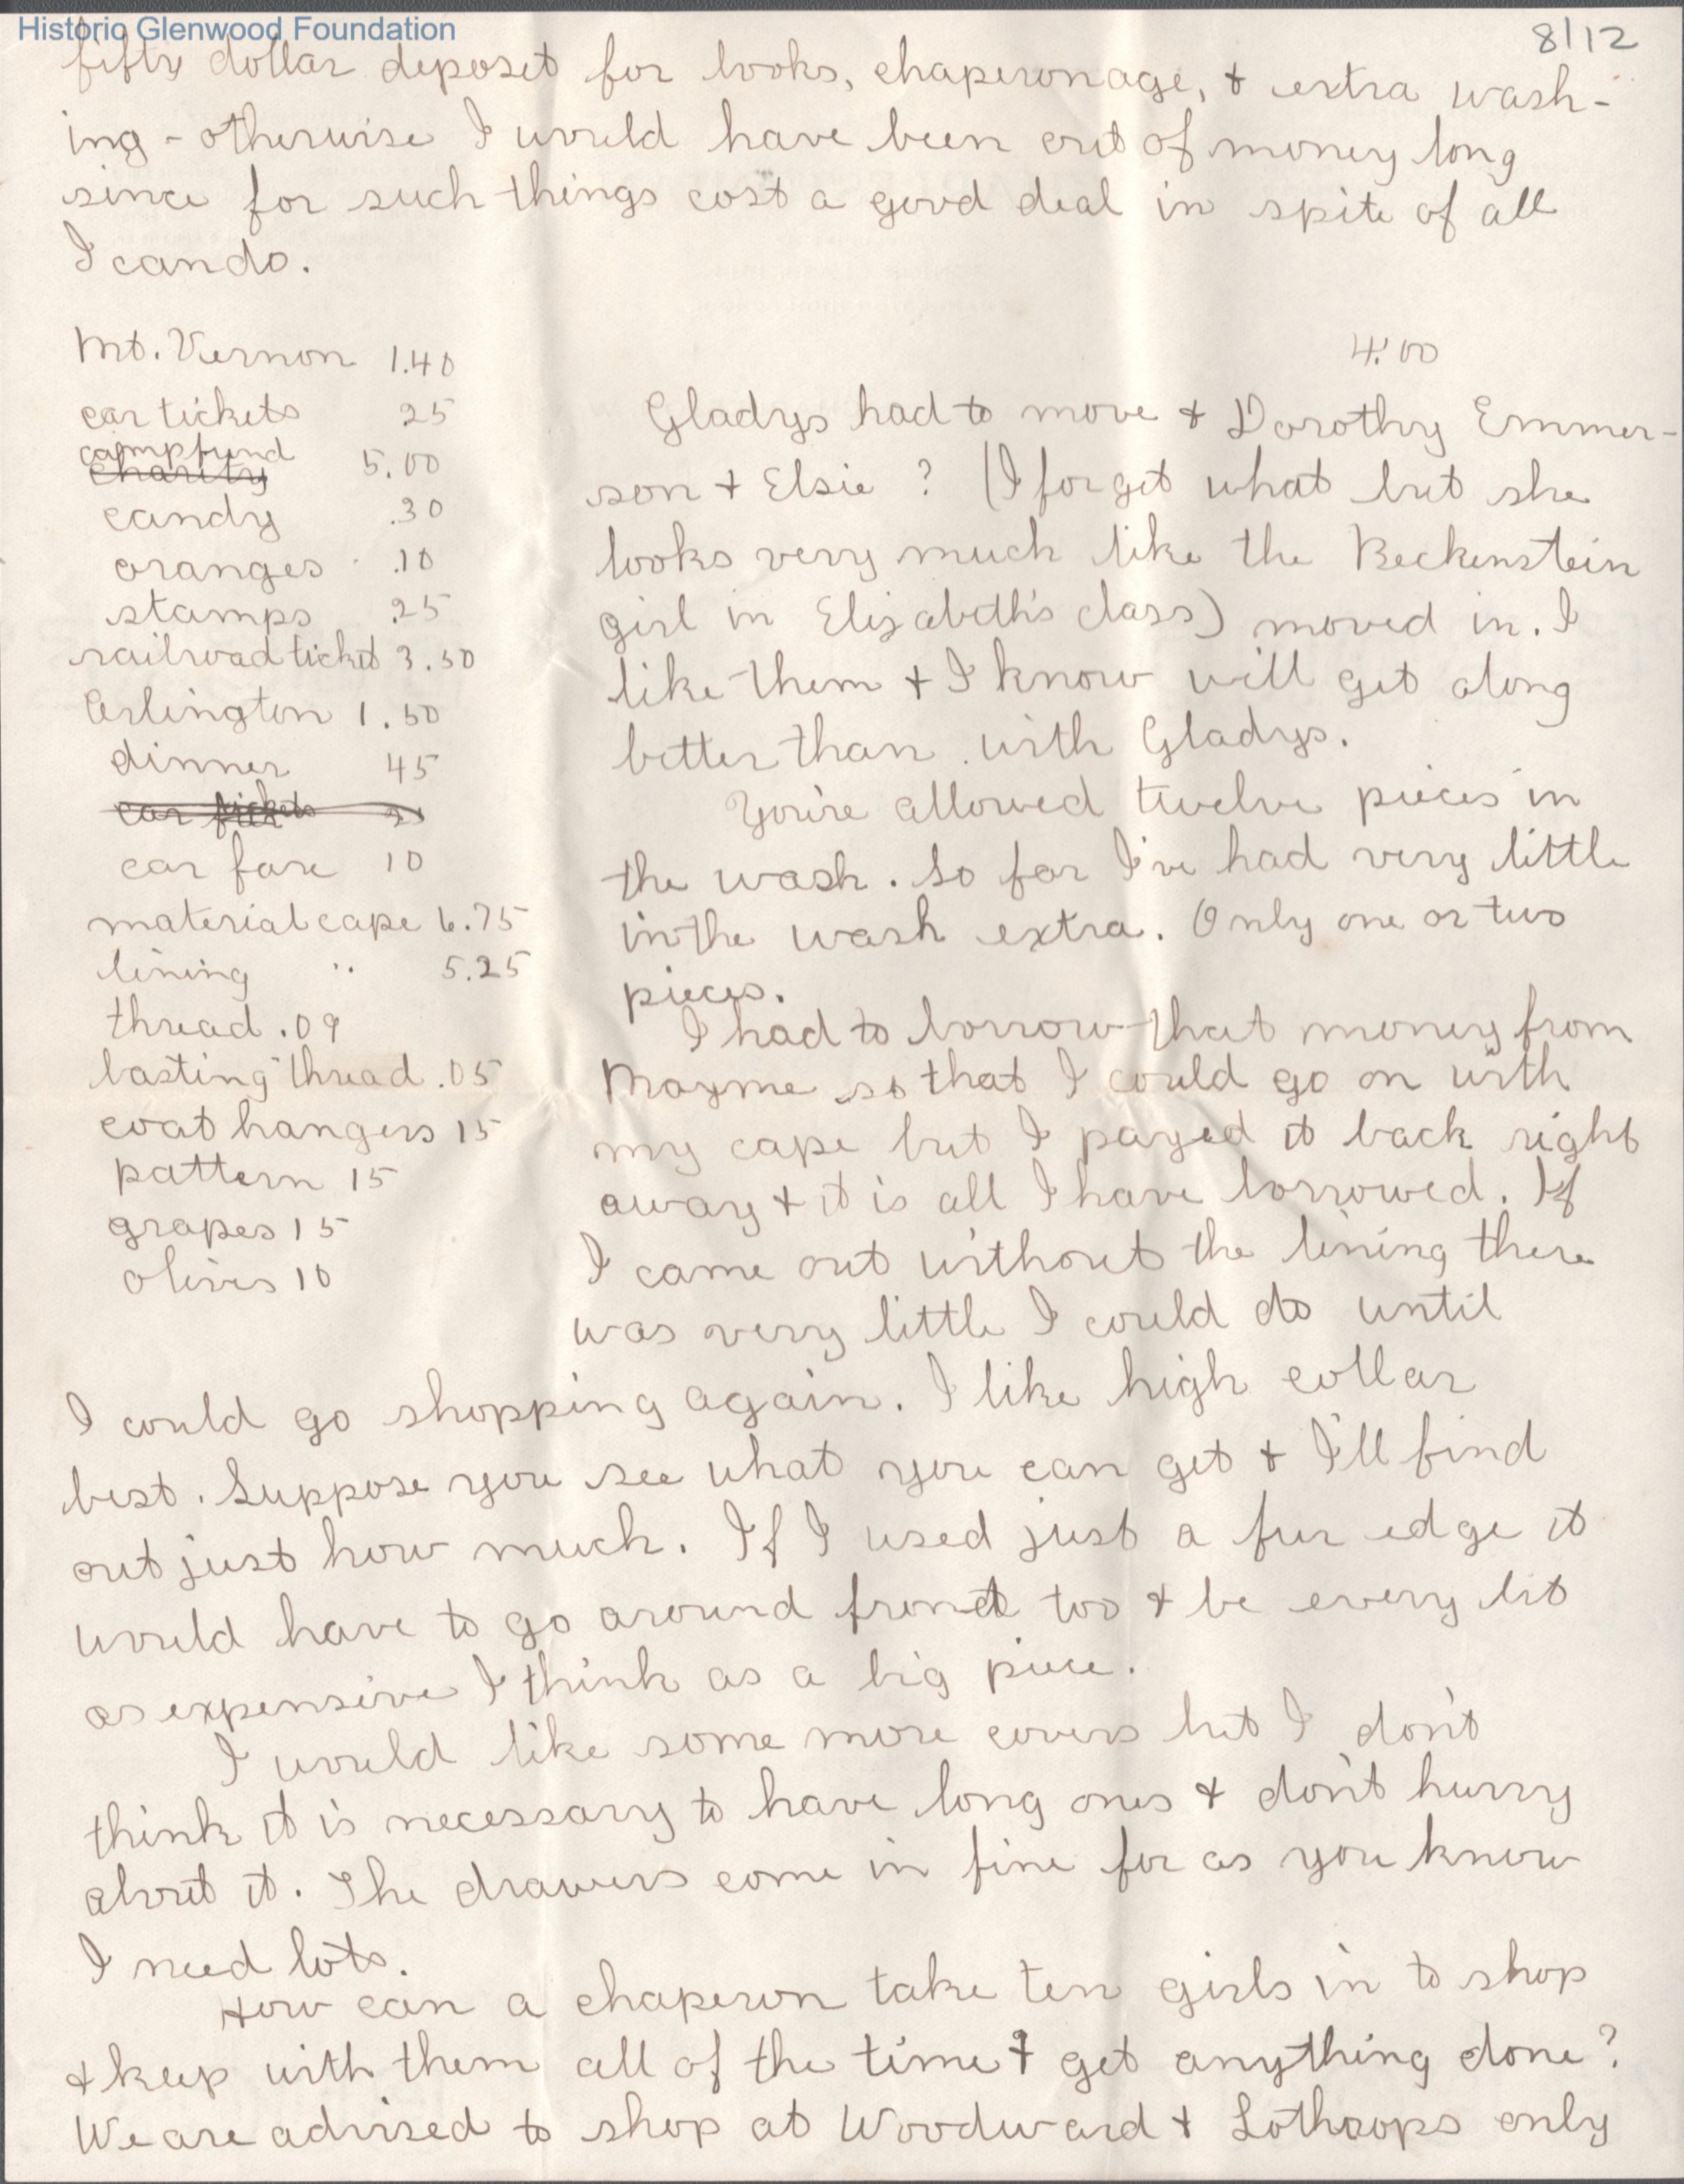 Historic Glenwood Foundation
8/12
fifty dollar deposit for books, chaperonage, & extra wash-
ing - otherwise I would have been out of money long
since for such things cost a good deal in spite of all
I can do.
Mt. Vernon 1.40
car tickets 25
campfund
charity 5.00
candy .30
oranges .10
stamps .25
railroad ticket 3.50
Arlington 1.50
dinner 45
car tickets 25
car fare 10
material cape 6.75
lining " 5.25
thread .09
basting thread .05
coat hangers 15
pattern 15
grapes 15
olives 10
4.00
Gladys had to move & Dorothy Emmer-
son & Elsie ? (I forget what but she
looks very much like the Beckenstein
girl in Elizabeth's class) moved in. I
like them & I know will get along
better than with Gladys.
You're allowed twelve pieces in
the wash. So far I've had very little
in the wash extra. Only one or two
pieces.
I had to borrow that money from
Mayme so that I could go on with
my cape but I payed it back right
away & it is all I have borrowed. If
I came out without the lining there
was very little I could do until
I could go shopping again. I like high collar
best. Suppose you see what you can get & I'll find
out just how much. If I used just a fur edge it
would have to go around front too & be every bit
as expensive I think as a big piece.
I would like some more covers but I don't
think it is necessary to have long ones & don't hurry
about it. The drawers come in fine for as you know
I need lots.
How can a chaperon take ten girls in to shop
& keep with them all of the time & get anything done?
We are advised to shop at Woodward & Lothrops only